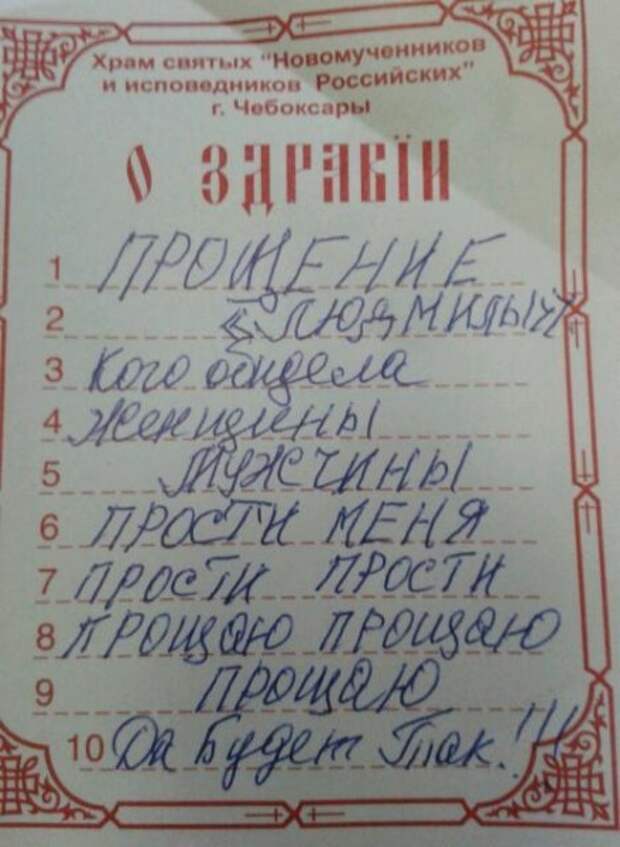 Храм святых "Новомученников
и исповедников Российских"
г. Чебоксары
О ЗДРАВIИ
1 ПРОЩЕНИЕ
2 ЛЮДМИЛЫ
3 Кого обидела
4 Женщины
5 МУЖЧИНЫ
6 ПРОСТИ МЕНЯ
7 ПРОСТИ ПРОСТИ
8 ПРОЩАЮ ПРОЩАЮ
9 ПРОЩАЮ
10 Да будет Так.!!!